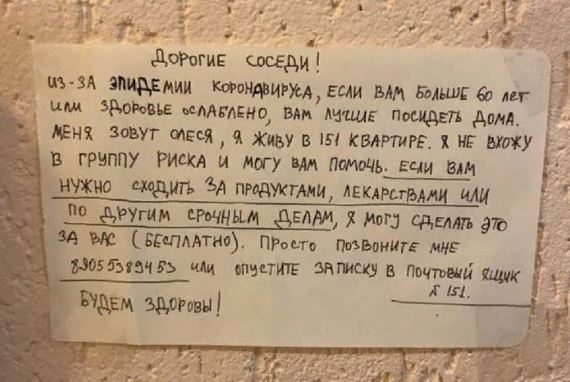 ДОРОГИЕ СОСЕДИ!
ИЗ-ЗА ЭПИДЕМИИ КОРОНАВИРУСА, ЕСЛИ ВАМ БОЛЬШЕ 60 ЛЕТ
ИЛИ ЗДОРОВЬЕ ОСЛАБЛЕНО, ВАМ ЛУЧШЕ ПОСИДЕТЬ ДОМА.
МЕНЯ ЗОВУТ ОЛЕСЯ, Я ЖИВУ В 151 КВАРТИРЕ. Я НЕ ВХОЖУ
В ГРУППУ РИСКА И МОГУ ВАМ ПОМОЧЬ. ЕСЛИ ВАМ
НУЖНО СХОДИТЬ ЗА ПРОДУКТАМИ, ЛЕКАРСТВАМИ ИЛИ
ПО ДРУГИМ СРОЧНЫМ ДЕЛАМ, Я МОГУ СДЕЛАТЬ ЭТО
ЗА ВАС (БЕСПЛАТНО). ПРОСТО ПОЗВОНИТЕ МНЕ
89055389453 ИЛИ ОПУСТИТЕ ЗАПИСКУ В ПОЧТОВЫЙ ЯЩИК
№ 151.
БУДЕМ ЗДОРОВЫ!